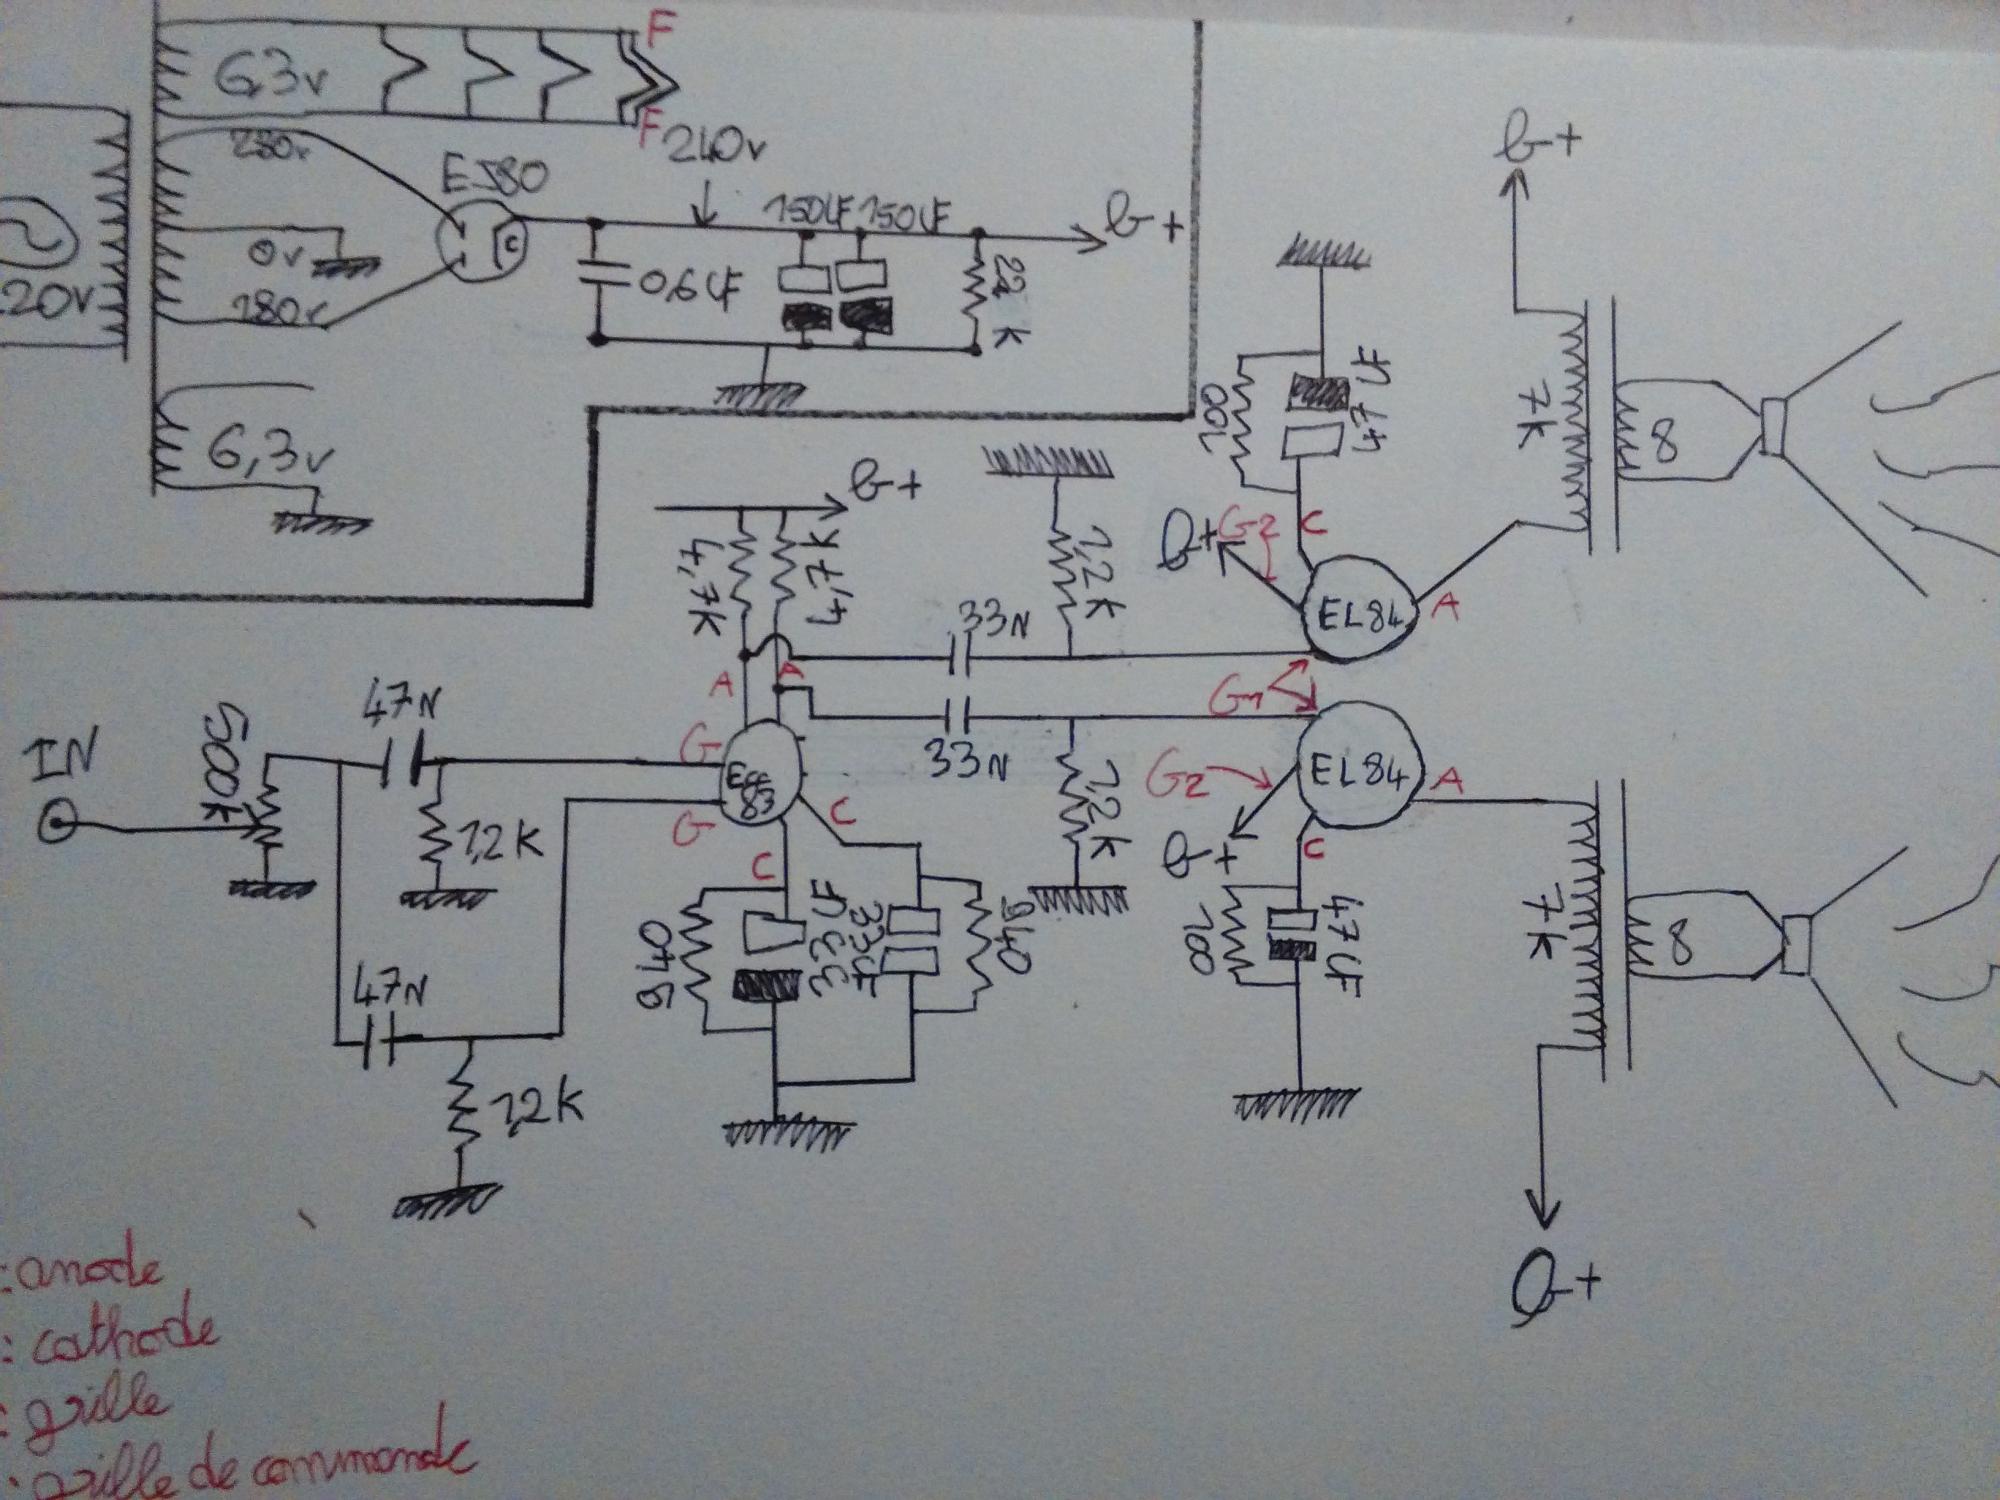 F
6,3v
F
280v
EZ80
240v
150UF 150UF
b+
0v
0,6UF
22K
20v
280v
6,3v
b+
100
47UF
7K
8
b+
4,7K
4,7K
1,2K
b+
G2
C
EL84
A
33N
A
A
G1
47N
IN
500K
G
ECC
83
33N
G2
EL84
A
1,2K
G
C
1,2K
b+
C
C
940
33UF
33UF
940
100
47UF
7K
8
47N
1,2K
b+
: anode
: cathode
: grille
: grille de commande